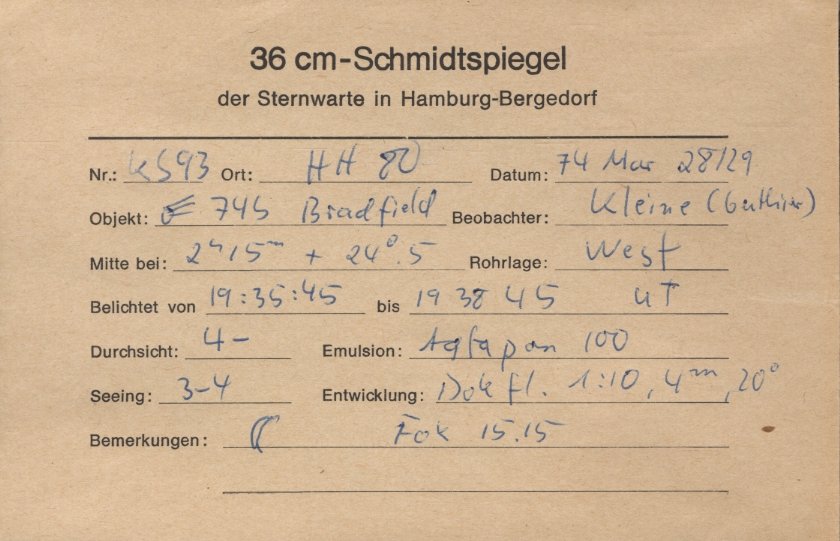 36 cm-Schmidtspiegel
der Sternwarte in Hamburg-Bergedorf
Nr.: KS93 Ort: HH 80 Datum: 74 Mar 28/29
Objekt: 74b Bradfield Beobachter: Kleine
Mitte bei: 2ʰ15ᵐ + 24°.5 Rohrlage: West
Belichtet von 19:35:45 bis 19 38 45 UT
Durchsicht: 4- Emulsion: Agfapan 100
Seeing: 3-4 Entwicklung: Dokfl. 1:10, 4ᵐ, 20°
Bemerkungen: Fok 15.15